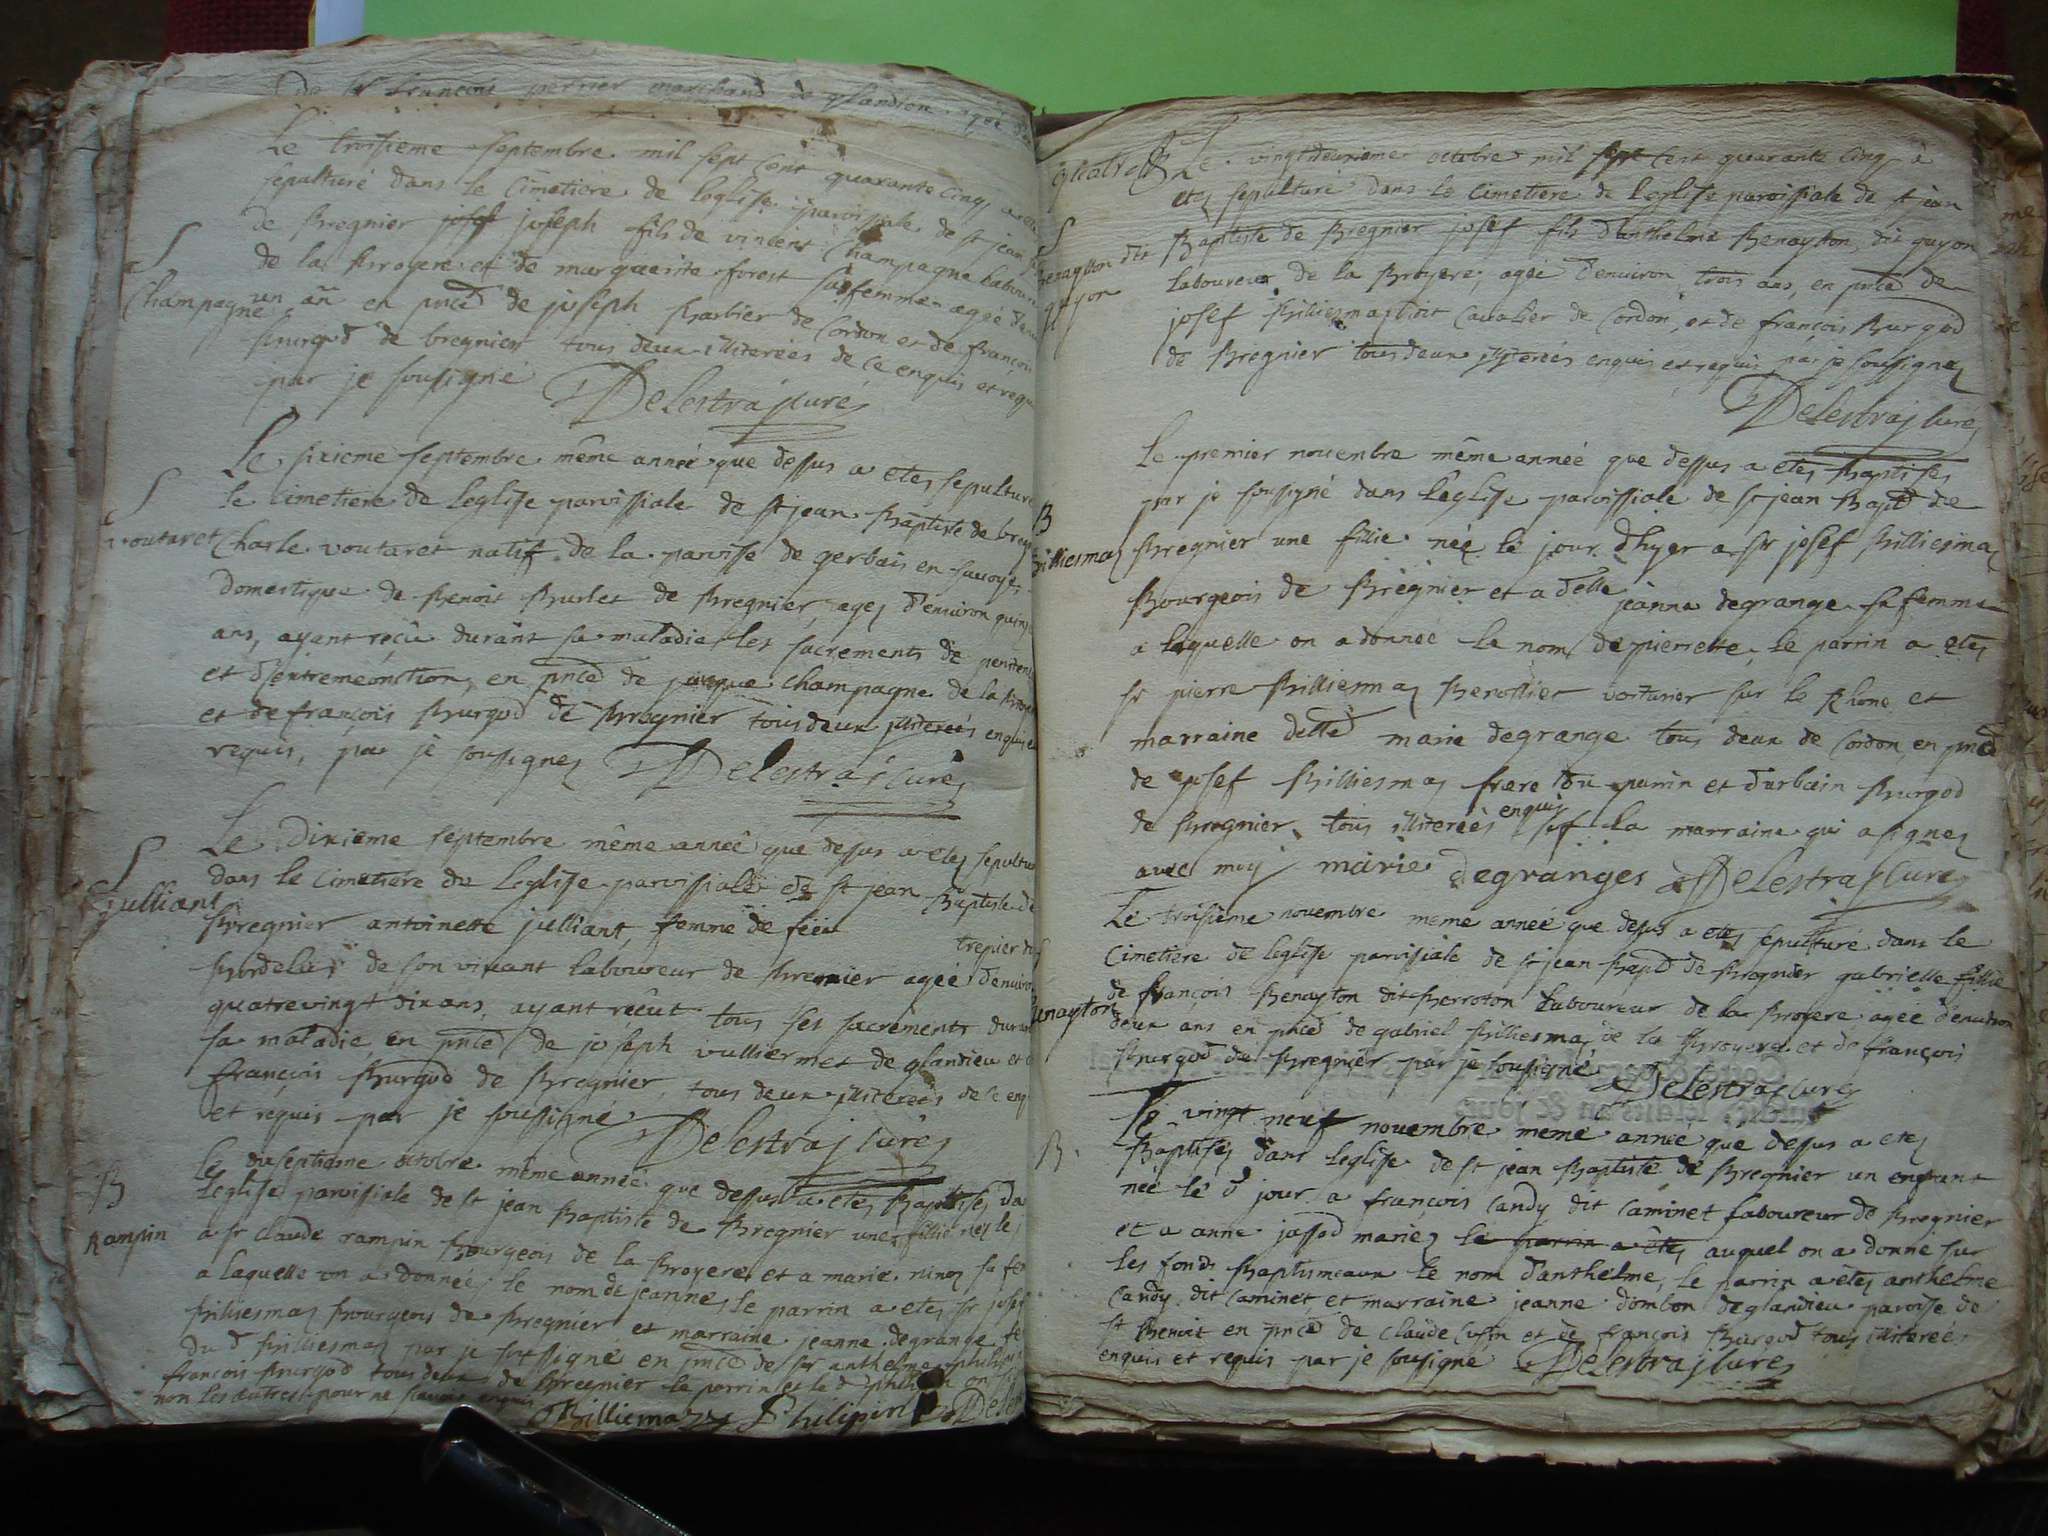 de sr françois perrier marchand de glandieu
Le troisieme septembre mil sept cent quarante cinq a ete
sepulturé dans le cimetiere de leglise paroissiale de st jean
de Bregnier josef joseph fils de vincent Champagne laboureur
de la Broyere et de marguerite forest sa femme agée d'environ
S
Champagne
un an en pnce de joseph Barbier de Cordon et de françois
Burgod de bregnier tous deux illiterées de ce enquis et requis
par je sousigné Delestra curé
Le sixieme septembre même année que dessus a etez sepulturé
le cimetiere de leglise paroissiale de st jean Baptiste de bregnier
S
voutaret
Charle voutaret natif de la paroisse de gerbais en savoye,
domestique de Benoit Burlet de Bregnier, agez d'environ quinze
ans, ayant reçu durant sa maladie les sacrements de penitence
et d'extremeonction, en pnce de jacque Champagne de la Broyere
et de françois Burgod de Bregnier tous deux illiterées enquis et
requis, par je sousignez Delestra curéz
Le dixieme septembre même année que dessus a etez sepulturé
S
Julliant
dans le cimetiere de leglise paroissiale de st jean Baptiste de
Bregnier antoinette julliant, femme de féeu trepier dit
Bordelas de son vivant laboureur de Bregnier agée d'environ
quatrevingt dix ans, ayant reçüt tous ses sacrements durant
sa maladie, en pnce de joseph vulliermet de glandieu et de
françois Burgod de Bregnier, tous deux illiterées de ce enquis
et requis par je soussigné Delestra curéz
Le dixseptieme octobre même année que dessus a etez Baptisez dans
B
Rampin
leglise paroissiale de st jean Baptiste de Bregnier une fillie néez
a sr claude rampin Bourgeois de la Broyere et a marie ninez sa femme
a laquelle on a donnée le nom de jeanne, le parrin a etez sr josef
Billiesmaz Bourgeois de Bregnier et marraine jeanne degrange femme
du d Billiesmaz par je soussigné en pnce de sr anthelme philipin
françois Burgod tous deux de Bregnier le parrin et le d philipin on
non les autres pour ne savoir enquis
Billiemaz Philipin Delestra
Le vingtdeuxieme octobre mil sept cent quarante cinq a
etez sepulturé dans le cimetiere de leglise paroissiale de st jean
S
Benayton dit
guyon
Baptiste de Bregnier josef fils d'anthelme Benayton, dit guyon
laboureur de la Broyere, agée d'environ trois ans, en pnce de
josef Billiesmaz dit cavalier de cordon, et de françois Burgod
de Bregnier tous deux illiterées enquis et requis par je soussignez
Delestra curéz
Le premier novembre même année que dessus a etez Baptisez
par je sousigné dans l'eglise paroissiale de st jean Baptd de
B
Billiesmaz
Bregnier une fillie néé le jour d'hyer a sr josef Billiesmaz
Bourgeois de Bregnier et a delle jeanne degrange sa femme
a laquelle on a donnée le nom de pierrette, le parrin a etez
sr pierre Billiesmaz voiturier sur le Rhone et
marraine delle marie degrange tous deux de cordon, en pnce
de josef Billiesmaz frere du parrin et d'urbain Burgod
de Bregnier tous illiterées enquis sif la marraine qui a signez
avec moy marie degranges Delestra curéz
Le troisieme novembre meme année que dessus a etez sepulturé dans le
cimetiere de leglise paroissiale de st jean Baptd de Bregnier gabrielle fillie
Benayton
de françois Benayton dit Berroton laboureur de la Broyere agéé d'environ
deux ans en pnce de gabriel Billiesmaz de la Broyere et de françois
Burgod de Bregnier par je sousigné Delestra curéz
Le vingt neuf novembre meme année que dessus a etez
B
Baptisez dans leglise de st jean Baptiste de Bregnier un enfant
née le d jour a françois Candy dit Caminet laboureur de Bregnier
et a anne jassod mariez le parrin a etez auquel on a donné sur
les fonds Baptismeaux le nom d'anthelme, le parrin a étez anthelme
Candy dit Caminet, et marraine jeanne dombon de glandieu paroisse de
st Benoit en pnce de claude cusin et de françois Burgod tous illiterées
enquis et requis par je sousigné Delestra curéz